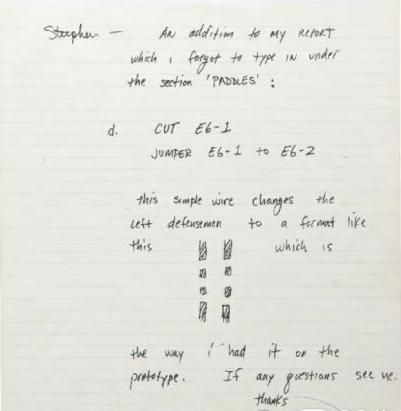 Stephen — An addition to my REPORT
which i forgot to type in under
the section 'PADDLES' :
d. CUT E6-1
JUMPER E6-1 to E6-2
this simple wire changes the
left defensemen to a format like
this which is
the way i had it on the
prototype. If any questions see me.
thanks